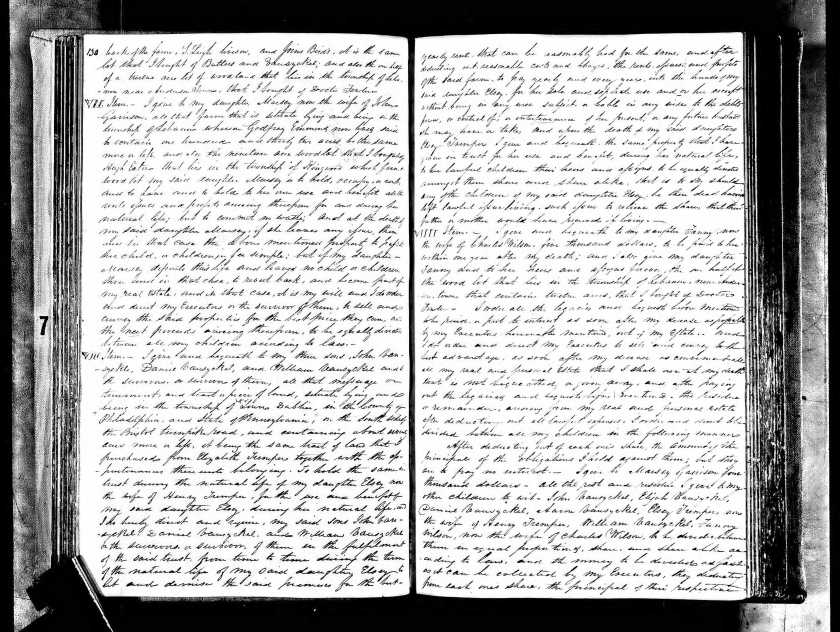 130 back of the farm, S. Leigh Lin and Jno Bird's, it is the same
lot that I bought of Butters and Vansyckel, and also the one half
of a twelve acre lot of woodland that lies in the township of Leba-
non near Anderson Town, that I bought of Docter
VII Item – I give to my daughter Massey now the wife of John
Garrison, all that farm that is situate lying and being in the
township of Lebanon whereon Godfrey Emmons now lives, said
to contain one hundred and thirty two acres be the same
more or less and also the nineteen acre woodlot that I bought of
that lies in the township of Kingwood which farm &
wood lot my said daughter Massey is to hold, occupy,
and to have and to hold to her own use and benefit all the
rents issues and profits arising therefrom for and during her
natural life; but to commit no waste; and at the death of
my said daughter Massey, if she leaves any issue, then
in that case the above mentioned property to pass to
her child, or children, in fee simple; but if my daughter –
Massey departs this life and leaves no child or children
then and in that case, to revert back, and become part of
my real Estate, and in that case, it is my will and I do order
and direct my Executors or the survivor of them, to sell and
convey the said properties for the best price they can, and
the neat proceeds arising therefrom, to be equally divided
between all my children according to law. –
VIII Item – I give and bequeath to my three sons, John Van-
syckel, Daniel Vansyckel, and William Vansyckel and to
the survivors or survivor of them, all that messuage or
tenement, and tract or piece of land, situate lying and
being in the township of Lower Dublin, in the County of
Philadelphia, and State of Pennsylvania, on the South side of
the Bristol turnpike road, and containing about
acres more or less, it being the same tract of land that I
purchased from Elizabeth Tremper together with the ap-
purtenances thereunto belonging. To hold the same in
trust during the natural life of my daughter Elsey now
the wife of Henry Tremper, for the use and benefit of
my said daughter Elsey, during her natural life, and
I do hereby direct and enjoin, my said sons John Van-
syckel, Daniel Vansyckel, and William Vansyckel
& the survivors or survivor of them in the fulfilment
of the said trust, from time to time during the term
of the natural life of my said daughter Elsey to
let and demise the said premises for the best
yearly rent, that can be reasonably had for the same, and after
deducting all reasonable costs and charges, the rents, issues and profits
of the said farm, to pay yearly and every year, into the hands of my
said daughter Elsey, for her sole and separate use and on her receipt
without being in any wise subject or liable in any wise to the debts
or control of, or interference of her present or any future husband
she may have or take, and upon the death of my said daughter
Elsey Tremper, I give and bequeath, the same property that I have
given in trust for her use and benefit, during her natural life,
to her lawful children their heirs and assigns to be equally divided
amongst them share and share alike. And so to as should
any of the children of my said daughter Elsey be then dead having
left lawful issue, such issue to receive the share, that their
father or mother would have received if living. –
VIIII Item – I give and bequeath to my daughter Fanny now
the wife of Charles Wilson, five thousand dollars, to be paid to her
within one year after my death; and I also give my daughter
Fanny and to her heirs and assigns forever, the one half of
the wood lot that lies in the township of Lebanon near Ander-
son town that contains twelve acres, that I bought of Docter
I order all the legacies and bequests herein mentioned
to be paid, or put to interest as soon after my decease as possible
by my Executors hereinafter mentioned, out of my Estate. And
I do order and direct my Executors to sell and convey to the
best advantage, as soon after my decease as convenient all
my real and personal Estate that I shall own at my death
that is not bequeathed, or given away, and after paying
out the legacies and bequests herein mentioned, the residue
or remainder, arising from my real and personal estate
after deducting out all lawful expenses, I order and direct to be
divided between all my children in the following manner
After deducting out of each one's share the amount of the
principals of the obligations I hold against them, but they
are to pay no interest. – I give to Massey Garrison four
thousand dollars – all the rest and residue I give to my
other children to wit – John Vansyckel, Elijah Vansyckel,
Daniel Vansyckel, Aaron Vansyckel, Elsey Tremper, now
the wife of Henry Tremper, William Vansyckel, Fanny
Wilson, now the wife of Charles Wilson, to be divided between
them in equal proportions, share and share alike ac-
cording to law, and the money to be divided as fast
as it can be collected by my Executors, they deducting
from each one's share, the principal of their respective
7